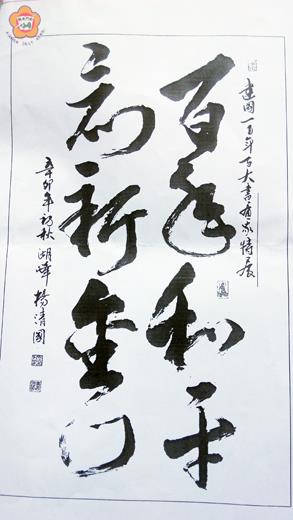 建國一百年百大書畫家特展
百年和平
創新金門
辛卯年初秋 湖峰 楊清國